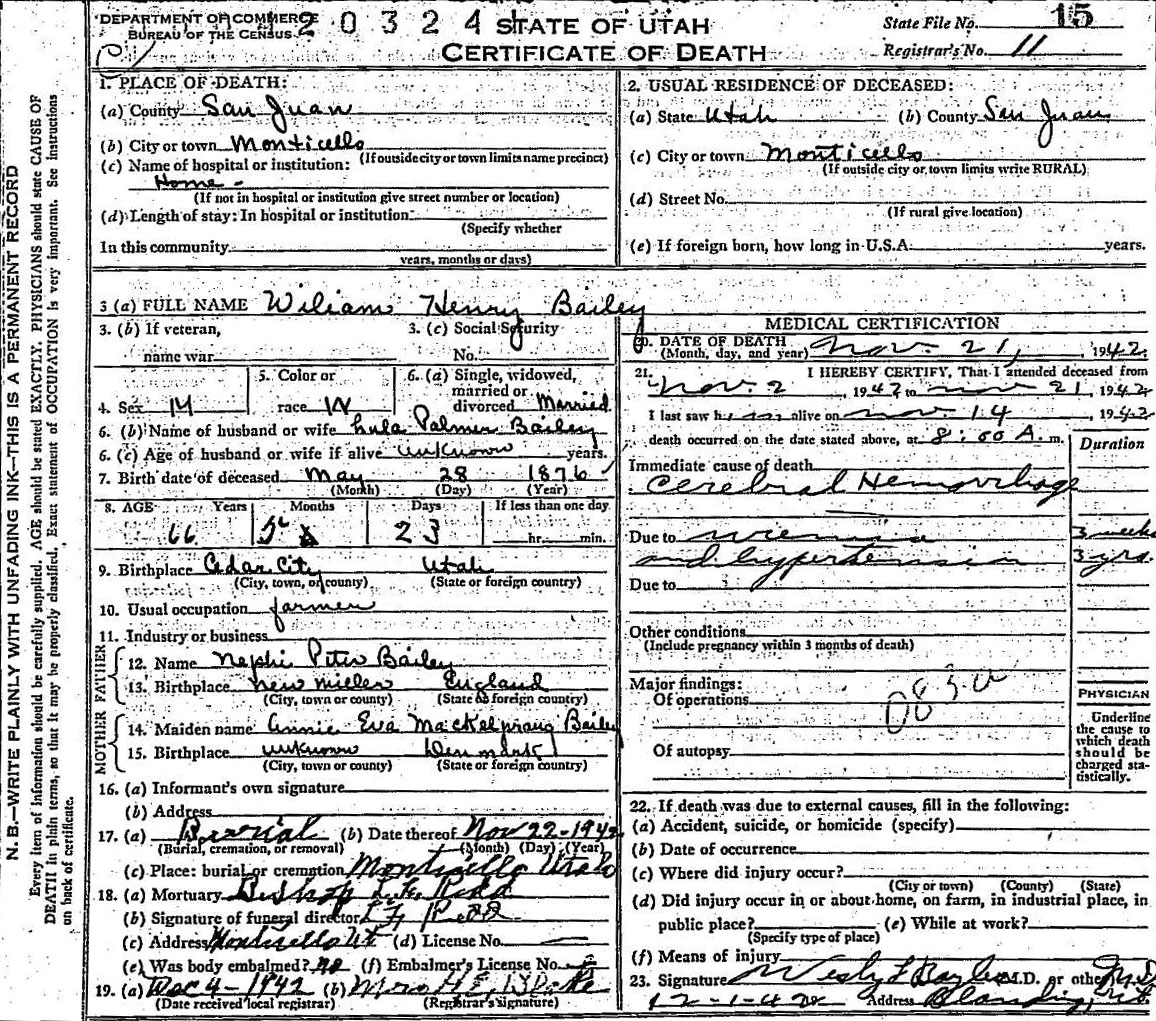 DEPARTMENT OF COMMERCE
BUREAU OF THE CENSUS
20324
STATE OF UTAH
CERTIFICATE OF DEATH
State File No. 15
Registrar's No. 11
N. B.—WRITE PLAINLY WITH UNFADING INK—THIS IS A PERMANENT RECORD
Every item of information should be carefully supplied. AGE should be stated EXACTLY. PHYSICIANS should state CAUSE OF
DEATH in plain terms, so that it may be properly classified. Exact statement of OCCUPATION is very important. See instructions
on back of certificate.
1. PLACE OF DEATH:
(a) County San Juan
(b) City or town Monticello
(If outside city or town limits name precinct)
(c) Name of hospital or institution:
Home -
(If not in hospital or institution give street number or location)
(d) Length of stay: In hospital or institution
(Specify whether
In this community
years, months or days)
2. USUAL RESIDENCE OF DECEASED:
(a) State Utah (b) County San Juan
(c) City or town Monticello
(If outside city or town limits write RURAL)
(d) Street No.
(If rural give location)
(e) If foreign born, how long in U.S.A. years.
3 (a) FULL NAME Wiliam Henry Bailey
3. (b) If veteran,
name war
3. (c) Social Security
No.
4. Sex M
5. Color or
race W
6. (a) Single, widowed,
married or
divorced Married
6. (b) Name of husband or wife Lula Palmer Bailey
6. (c) Age of husband or wife if alive unknown years.
7. Birth date of deceased May 28 1876
(Month) (Day) (Year)
8. AGE Years Months Days If less than one day
66 5 23 hr. min.
9. Birthplace Cedar City Utah
(City, town, or county) (State or foreign country)
10. Usual occupation farmer
11. Industry or business
FATHER
12. Name Nephi Peter Bailey
13. Birthplace New Miller England
(City, town or county) (State or foreign country)
MOTHER
14. Maiden name Annie Eva Mackelprang Bailey
15. Birthplace unknown Denmark
(City, town or county) (State or foreign country)
16. (a) Informant's own signature
(b) Address
17. (a) Burrial (b) Date thereof Nov 22-1942
(Burial, cremation, or removal) (Month) (Day) (Year)
(c) Place: burial or cremation Monticello Utah
18. (a) Mortuary Bishop L.F. Redd
(b) Signature of funeral director L F Redd
(c) Address Monticello Ut (d) License No. —
(e) Was body embalmed? no (f) Embalmer's License No.
19. (a) Dec 4-1942 (b) Mrs H E
(Date received local registrar) (Registrar's signature)
MEDICAL CERTIFICATION
20. DATE OF DEATH
(Month, day, and year) Nov. 21, 1942.
21. I HEREBY CERTIFY, That I attended deceased from
Nov. 2, 1942 to Nov 21, 1942
I last saw him alive on Nov. 14, 1942
death occurred on the date stated above, at 8:00 A. m.
Duration
Immediate cause of death
Cerebral Hemorrhage
Due to uremia 3 weeks
and hypertension 3 yrs.
Due to
Other conditions
(Include pregnancy within 3 months of death)
Major findings:
Of operations
083a
Of autopsy
PHYSICIAN
Underline
the cause to
which death
should be
charged sta-
tistically.
22. If death was due to external causes, fill in the following:
(a) Accident, suicide, or homicide (specify)
(b) Date of occurrence
(c) Where did injury occur?
(City or town) (County) (State)
(d) Did injury occur in or about home, on farm, in industrial place, in
public place? (e) While at work?
(Specify type of place)
(f) Means of injury
23. Signature Wesly L Bayles M.D. or other M.D.
12-1-42 Address Blanding, Ut.